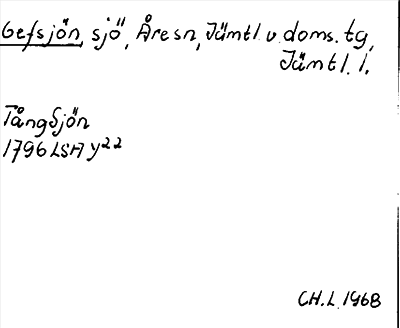 Gefsjön, sjö, Åre sn, Jämtl. v. doms. tg,
Jämtl. l.
Tångsjön
1796 LSA Y22
CH.L. 1968